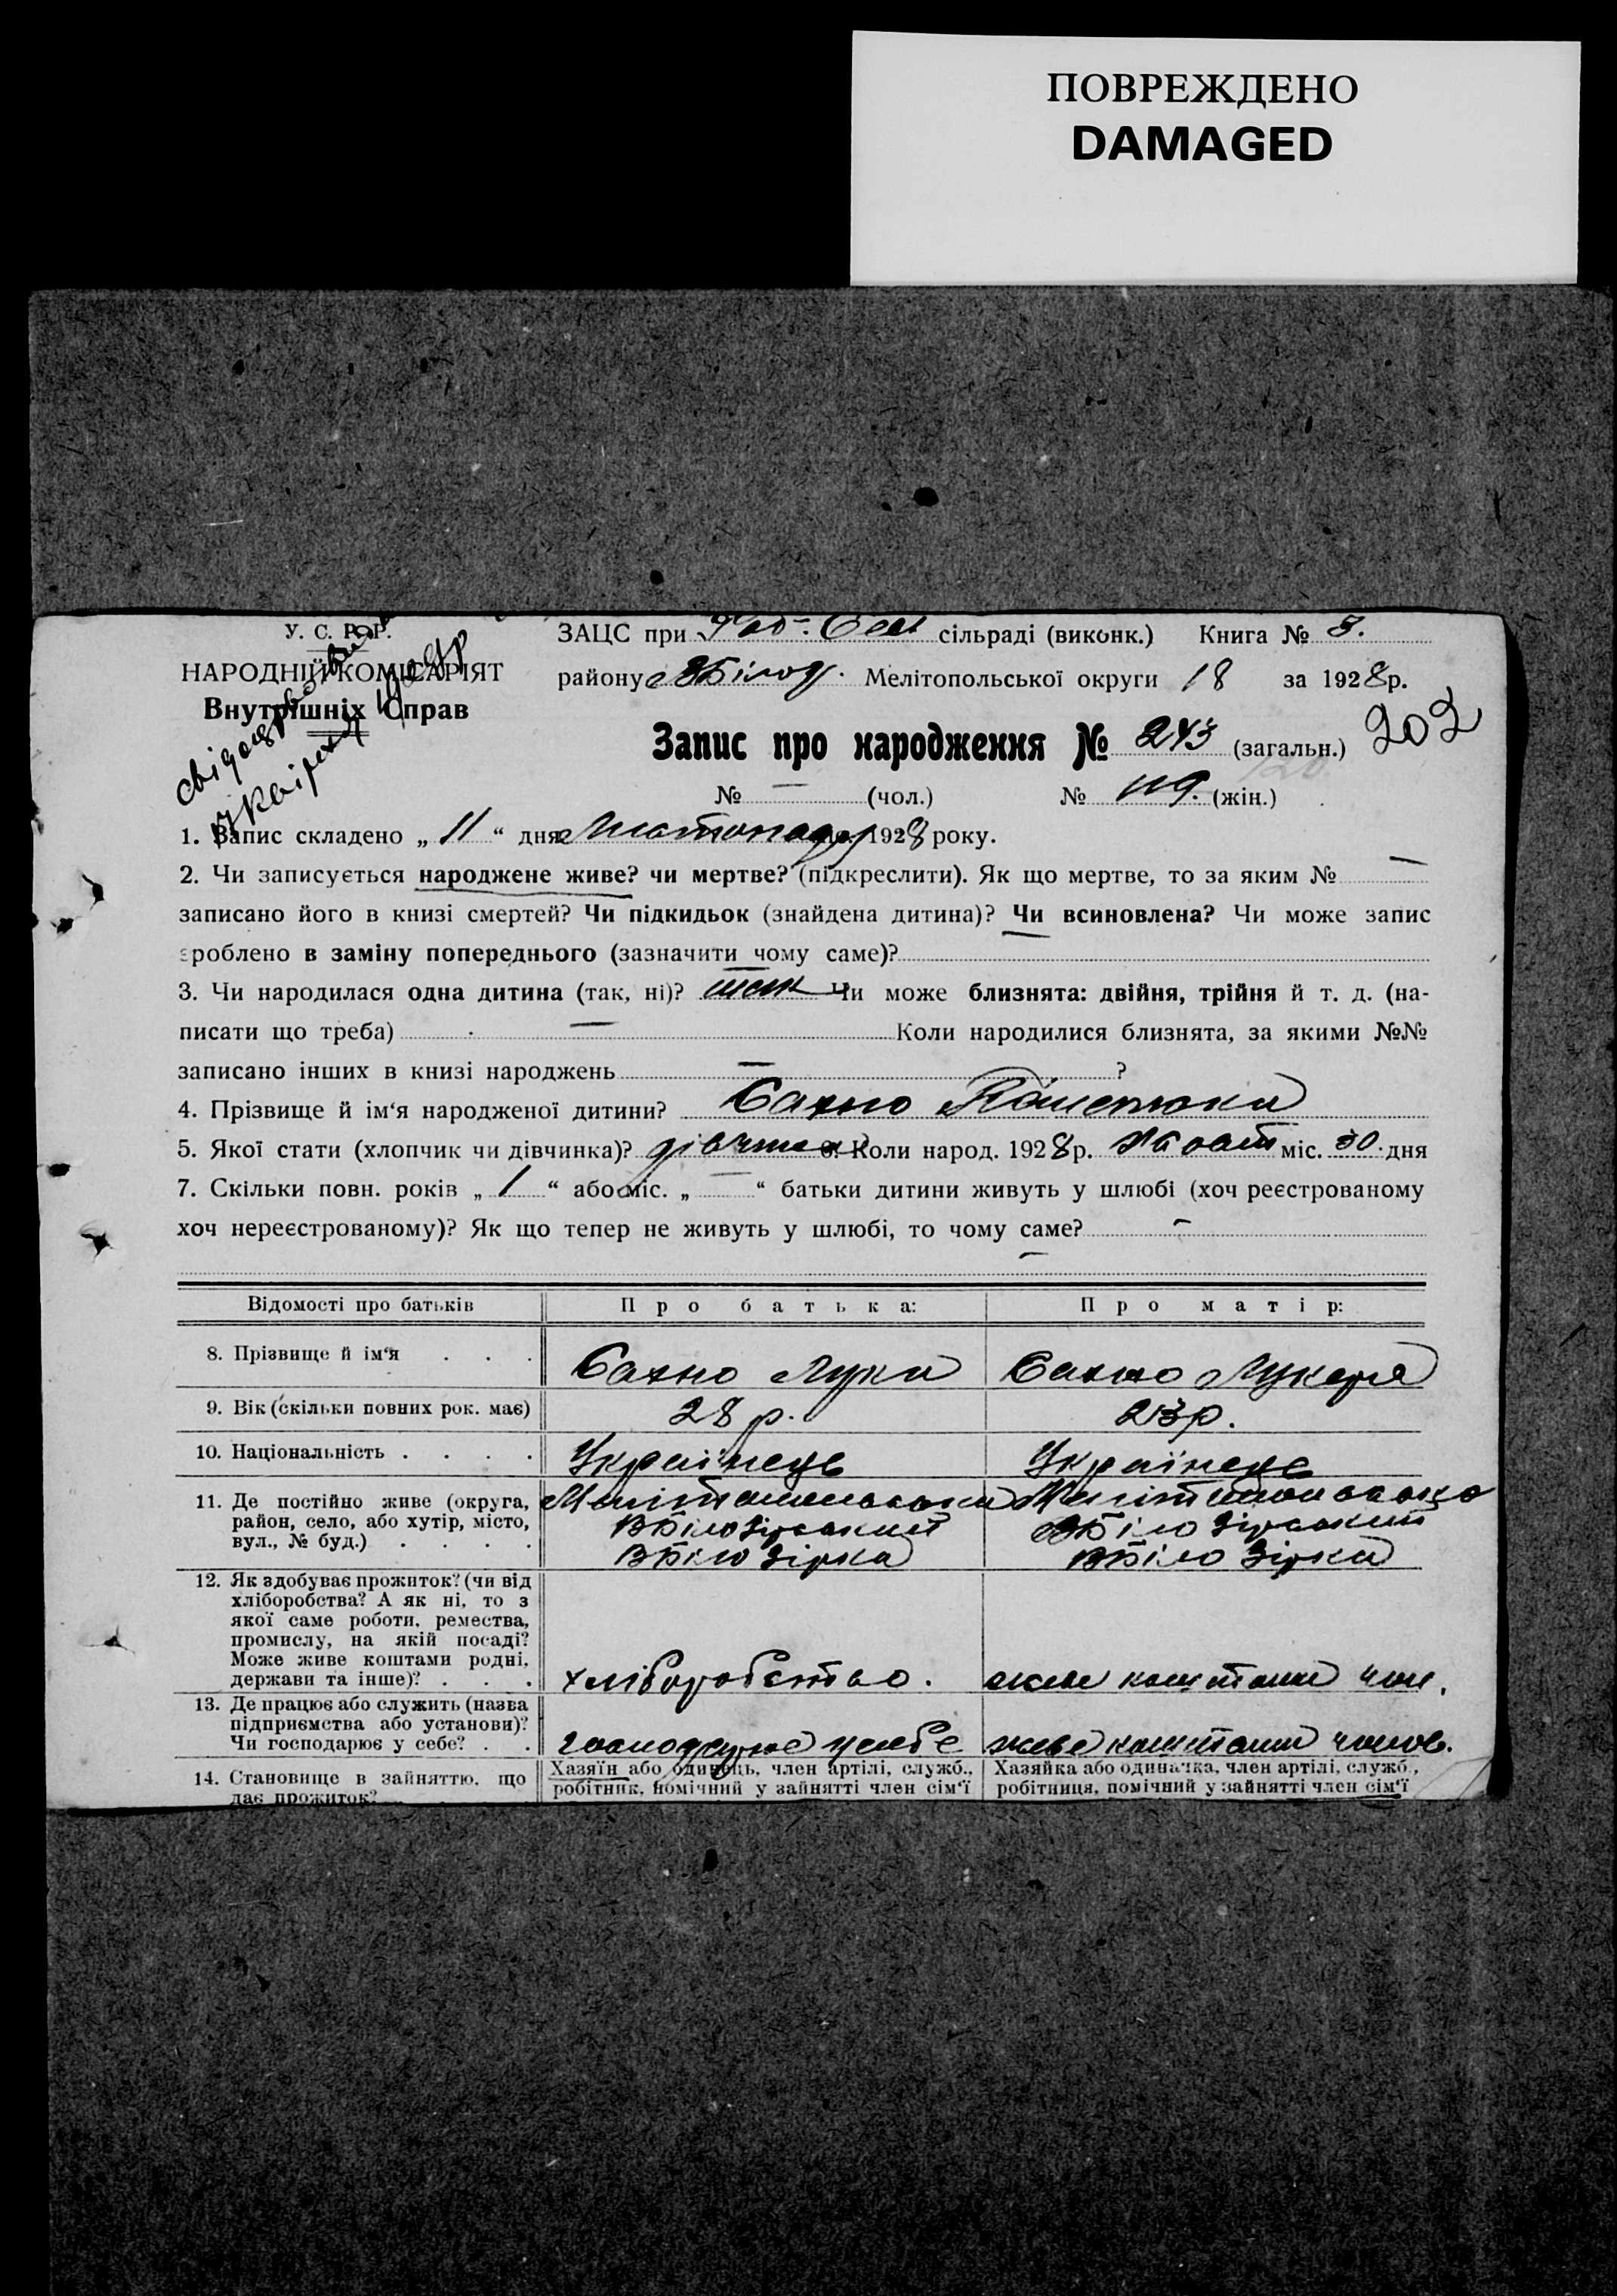 ПОВРЕЖДЕНО
DAMAGED
У. С. Р. Р.
НАРОДНІЙ КОМІСАРІЯТ
Внутрішніх Справ
ЗАЦС при сільраді (виконк.) Книга № 3.
району Мелітопольської округи 18 за 1928 р.
202
Запис про народження № 243 (загальн.)
№ — (чол.) № 119. (жін.)
1. Запис складено „ 11 “ дня Листопаду 1928 року.
2. Чи записується народжене живе? чи мертве? (підкреслити). Як що мертве, то за яким № —
записано його в книзі смертей? Чи підкидьок (знайдена дитина)? Чи всиновлена? Чи може запис
зроблено в заміну попереднього (зазначити чому саме)?
3. Чи народилася одна дитина (так, ні)? так Чи може близнята: двійня, трійня й т. д. (на-
писати що треба) — Коли народилися близнята, за якими №№
записано інших в книзі народжень — ?
4. Прізвище й ім‘я народженої дитини? Сахно
5. Якої стати (хлопчик чи дівчинка)? дівчина 6. Коли народ. 1928 р. міс. 30. дня
7. Скільки повн. років „ 1 “ або міс. „ — “ батьки дитини живуть у шлюбі (хоч реєстрованому
хоч нереєстрованому)? Як що тепер не живуть у шлюбі, то чому саме? —
Відомості про батьків Про батька: Про матір:
8. Прізвище й ім‘я . . . Сахно Лука Сахно Лукеря
9. Вік (скільки повних рок. має) 28 р. 23 р.
10. Національність . . . . Українець Українець
11. Де постійно живе (округа, Мелітопольська Мелітопольська
район, село, або хутір, місто, ВБілозірський ВБілозірський
вул., № буд.) . . . . ВБілозірка ВБілозірка
12. Як здобуває прожиток? (чи від
хліборобства? А як ні, то з
якої саме роботи, ремества,
промислу, на якій посаді?
Може живе коштами родні,
держави та інше)? . . . хліборобство. живе коштами чол.
13. Де працює або служить (назва
підприємства або установи)?
Чи господарює у себе? . . господарює у себе живе коштами чолов.
14. Становище в зайняттю, що
дає прожиток?
Хазяїн або одинець, член артілі, служб.,
робітник, помічний у зайнятті член сім‘ї
Хазяйка або одиначка, член артілі, служб.,
робітниця, помічний у зайнятті член сім‘ї